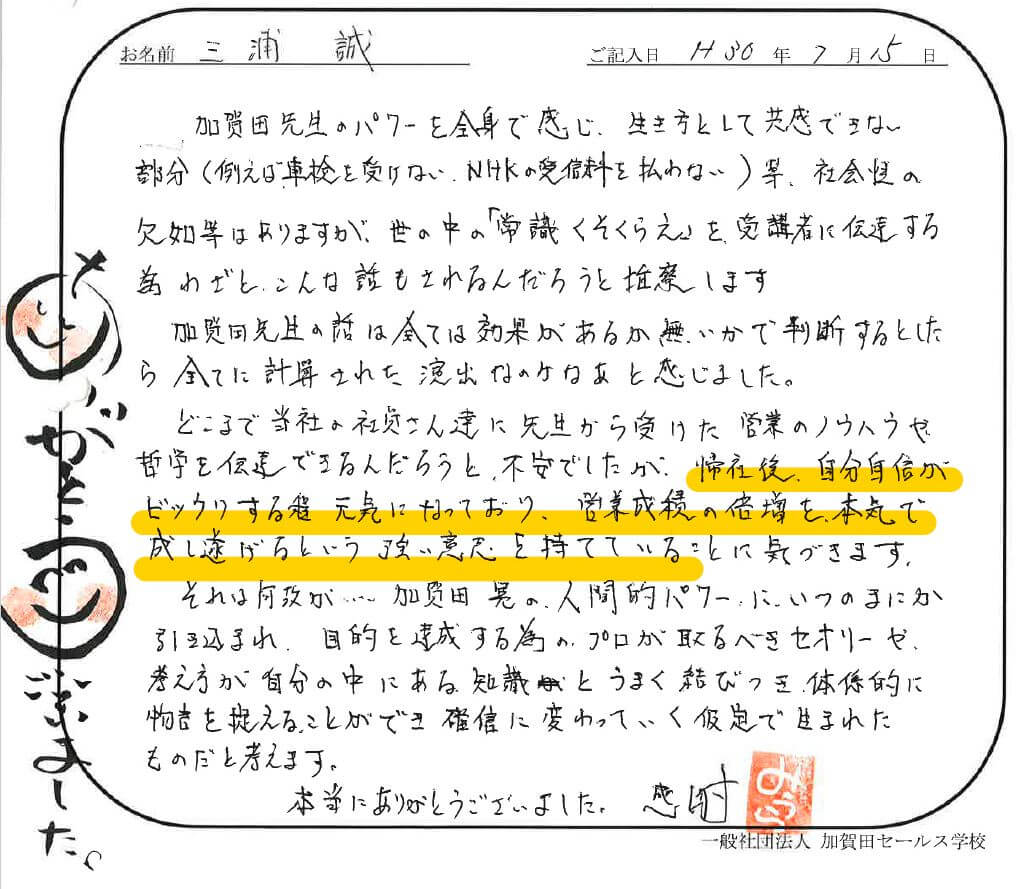 お名前 三浦 誠 ご記入日 H30年7月15日
加賀田先生のパワーを全身で感じ、生き方として共感できない
部分(例えば、車検を受けない、NHKの受信料を払わない)等、社会性の
欠如等はありますが、世の中の「常識くそくらえ」を、受講者に伝達する
為わざと、こんな話もされるんだろうと推察します
加賀田先生の話は全ては効果があるか無いかで判断するとした
ら全てに計算された演出なのかなあと感じました。
どこまで当社の社員さん達に先生から受けた営業のノウハウや
哲学を伝達できるんだろうと、不安でしたが、帰社後、自分自信が
ビックリする程元気になっており、営業成績の倍増を、本気で
成し遂げるという強い意志を持てていることに気づきます。
それは何故か……加賀田晃の、人間的パワーに、いつのまにか
引き込まれ、目的を達成する為の、プロが取るべきセオリーや、
考え方が自分の中にある知識とうまく結びつき、体系的に
物事を捉えることができ確信に変わっていく仮定で生まれた
ものだと考えます。
本当にありがとうございました。 感謝 みうら
一般社団法人 加賀田セールス学校
ありがとうございました。